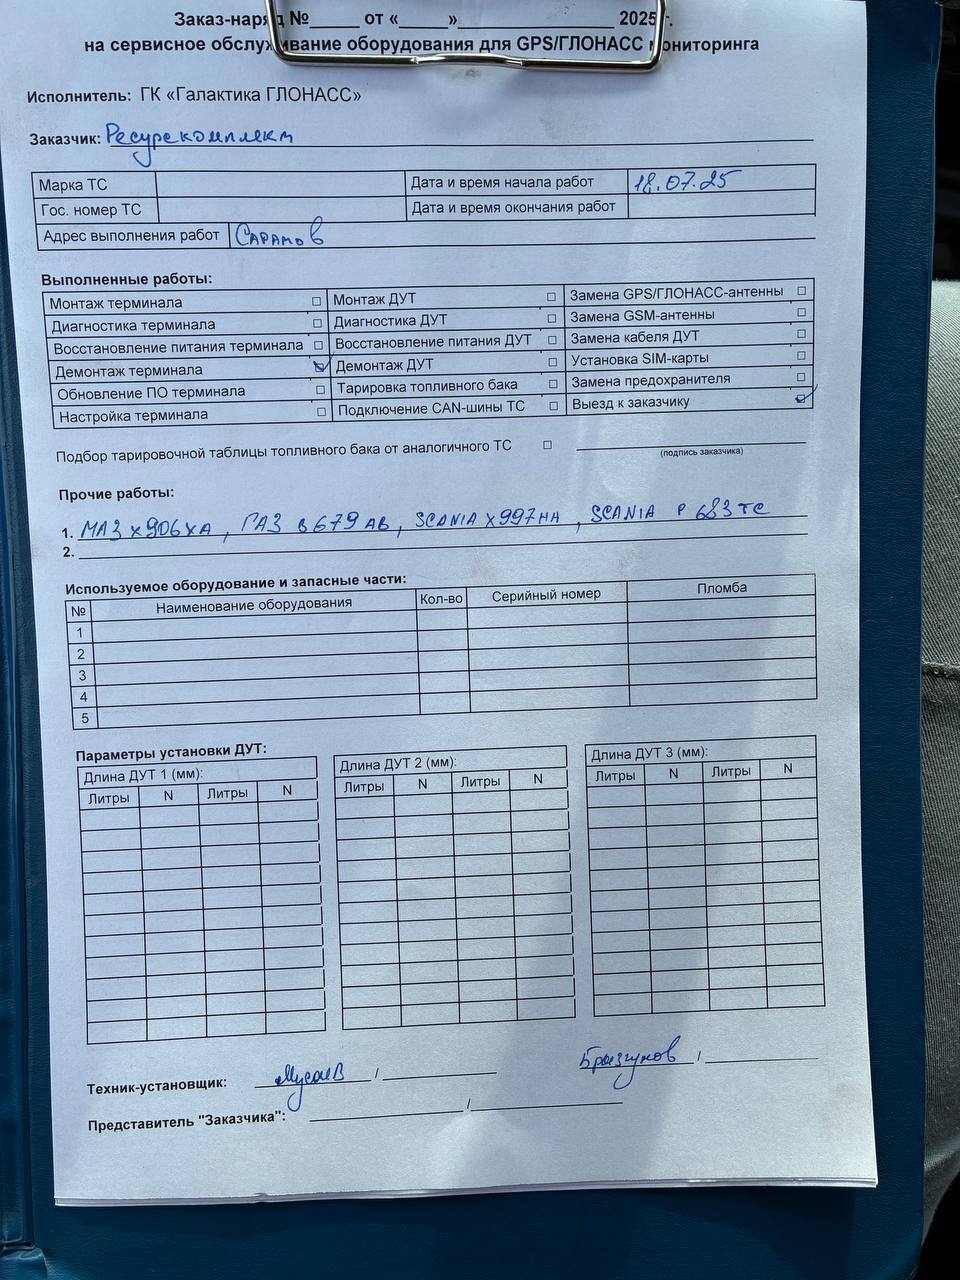 Заказ-наряд №_____ от «_____»________________ 2025 г.
на сервисное обслуживание оборудования для GPS/ГЛОНАСС мониторинга
Исполнитель: ГК «Галактика ГЛОНАСС»
Заказчик: Ресурскомплект
Марка ТС Дата и время начала работ 18.07.25
Гос. номер ТС Дата и время окончания работ
Адрес выполнения работ Саратов
Выполненные работы:
Монтаж терминала ☐ Монтаж ДУТ ☐ Замена GPS/ГЛОНАСС-антенны ☐
Диагностика терминала ☐ Диагностика ДУТ ☐ Замена GSM-антенны ☐
Восстановление питания терминала ☐ Восстановление питания ДУТ ☐ Замена кабеля ДУТ ☐
Демонтаж терминала ☑ Демонтаж ДУТ ☐ Установка SIM-карты ☐
Обновление ПО терминала ☐ Тарировка топливного бака ☐ Замена предохранителя ☐
Настройка терминала ☐ Подключение CAN-шины ТС ☐ Выезд к заказчику ☑
Подбор тарировочной таблицы топливного бака от аналогичного ТС ☐
(подпись заказчика)
Прочие работы:
1. МАЗ х906ХА, ГАЗ в679АВ, SCANIA х997НА, SCANIA Р683ТС
2.
Используемое оборудование и запасные части:
№ Наименование оборудования Кол-во Серийный номер Пломба
1
2
3
4
5
Параметры установки ДУТ:
Длина ДУТ 1 (мм): Длина ДУТ 2 (мм): Длина ДУТ 3 (мм):
Литры N Литры N Литры N Литры N Литры N Литры N
Техник-установщик: Мусаев / Брызгунов /
Представитель "Заказчика": /